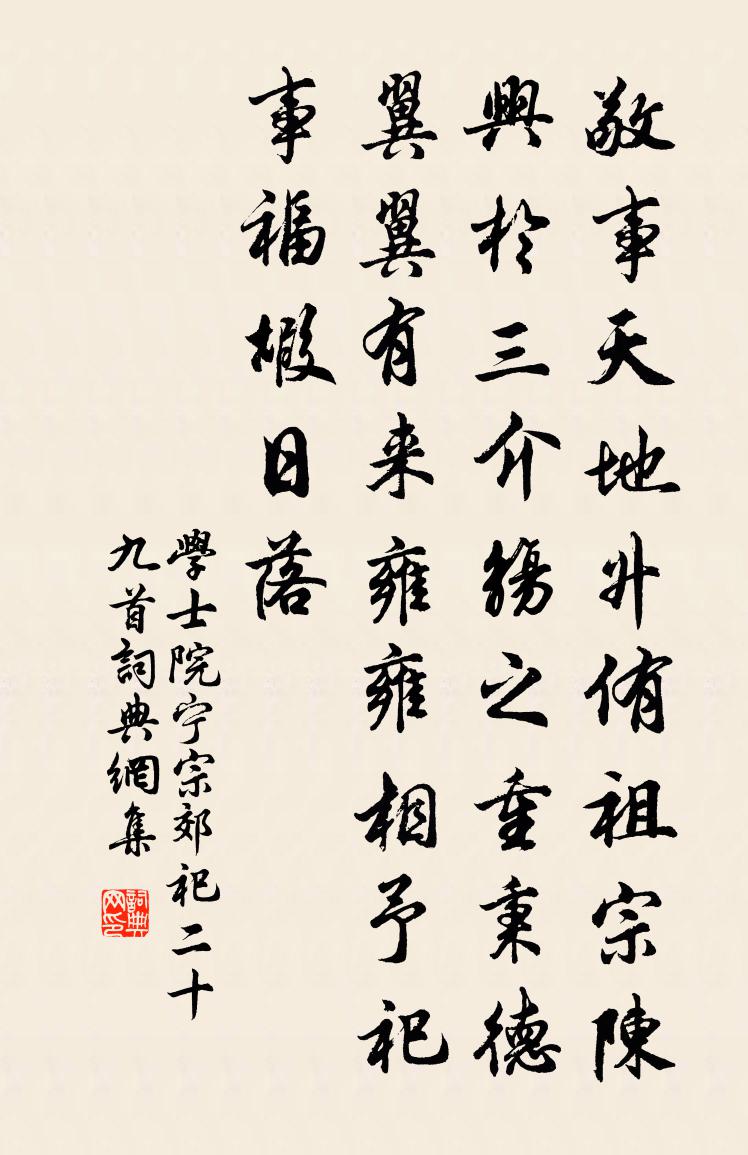 敬事天地升侑祖宗陳
興於三介觴之重秉德
翼翼有来雍雍相予祀
事福嘏日落
學士院宁宗郊祀二十
九首詞典網集
詞典网印